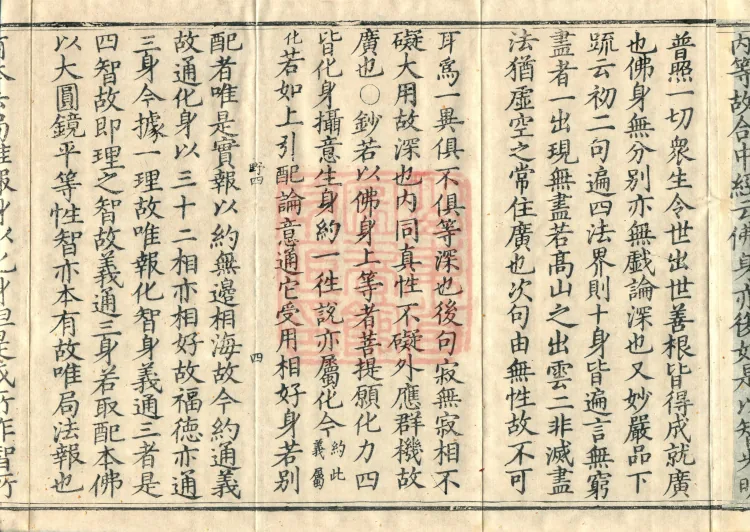 内等故合中經云佛身亦復如是以智步明
普照一切衆生令世出世善根皆得成就廣
也佛身無分別亦無戲論深也又妙嚴品下
䟽云初二句遍四法界則十身皆遍言無窮
盡者一出現無盡若髙山之出雲二非滅盡
法猶虛空之常住廣也次句由無性故不可
耳爲一異俱不俱等深也後句寂無寂相不
礙大用故深也内同真性不礙外應群機故
廣也○鈔若以佛身上等者菩提願化力四
皆化身攝意生身約一徃說亦屬化今約此義屬
化若如上引配論意通它受用相好身若別
野四
四
配者唯是實報以約無邊相海故今約通義
故通化身以三十二相亦相好故福德亦通
三身今據一理故唯報化智身義通三者是
四智故即理之智故義通三身若取配本佛
以大圓鏡平等性智亦本有故唯局法報也